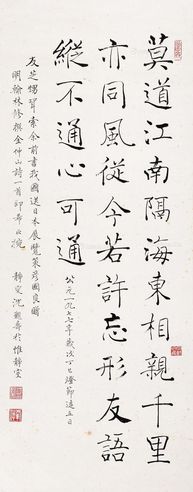 莫道江南隔海東相親千里
亦同風從今若許忘形友語
縱不通心可通
公元一九七七年歲次丁巳燈節後五日
友芝甥壻索余前書我國送日本展覽
明翰林修撰金仲山詩一首即希正腕
靜定沈覲壽於惟靜室